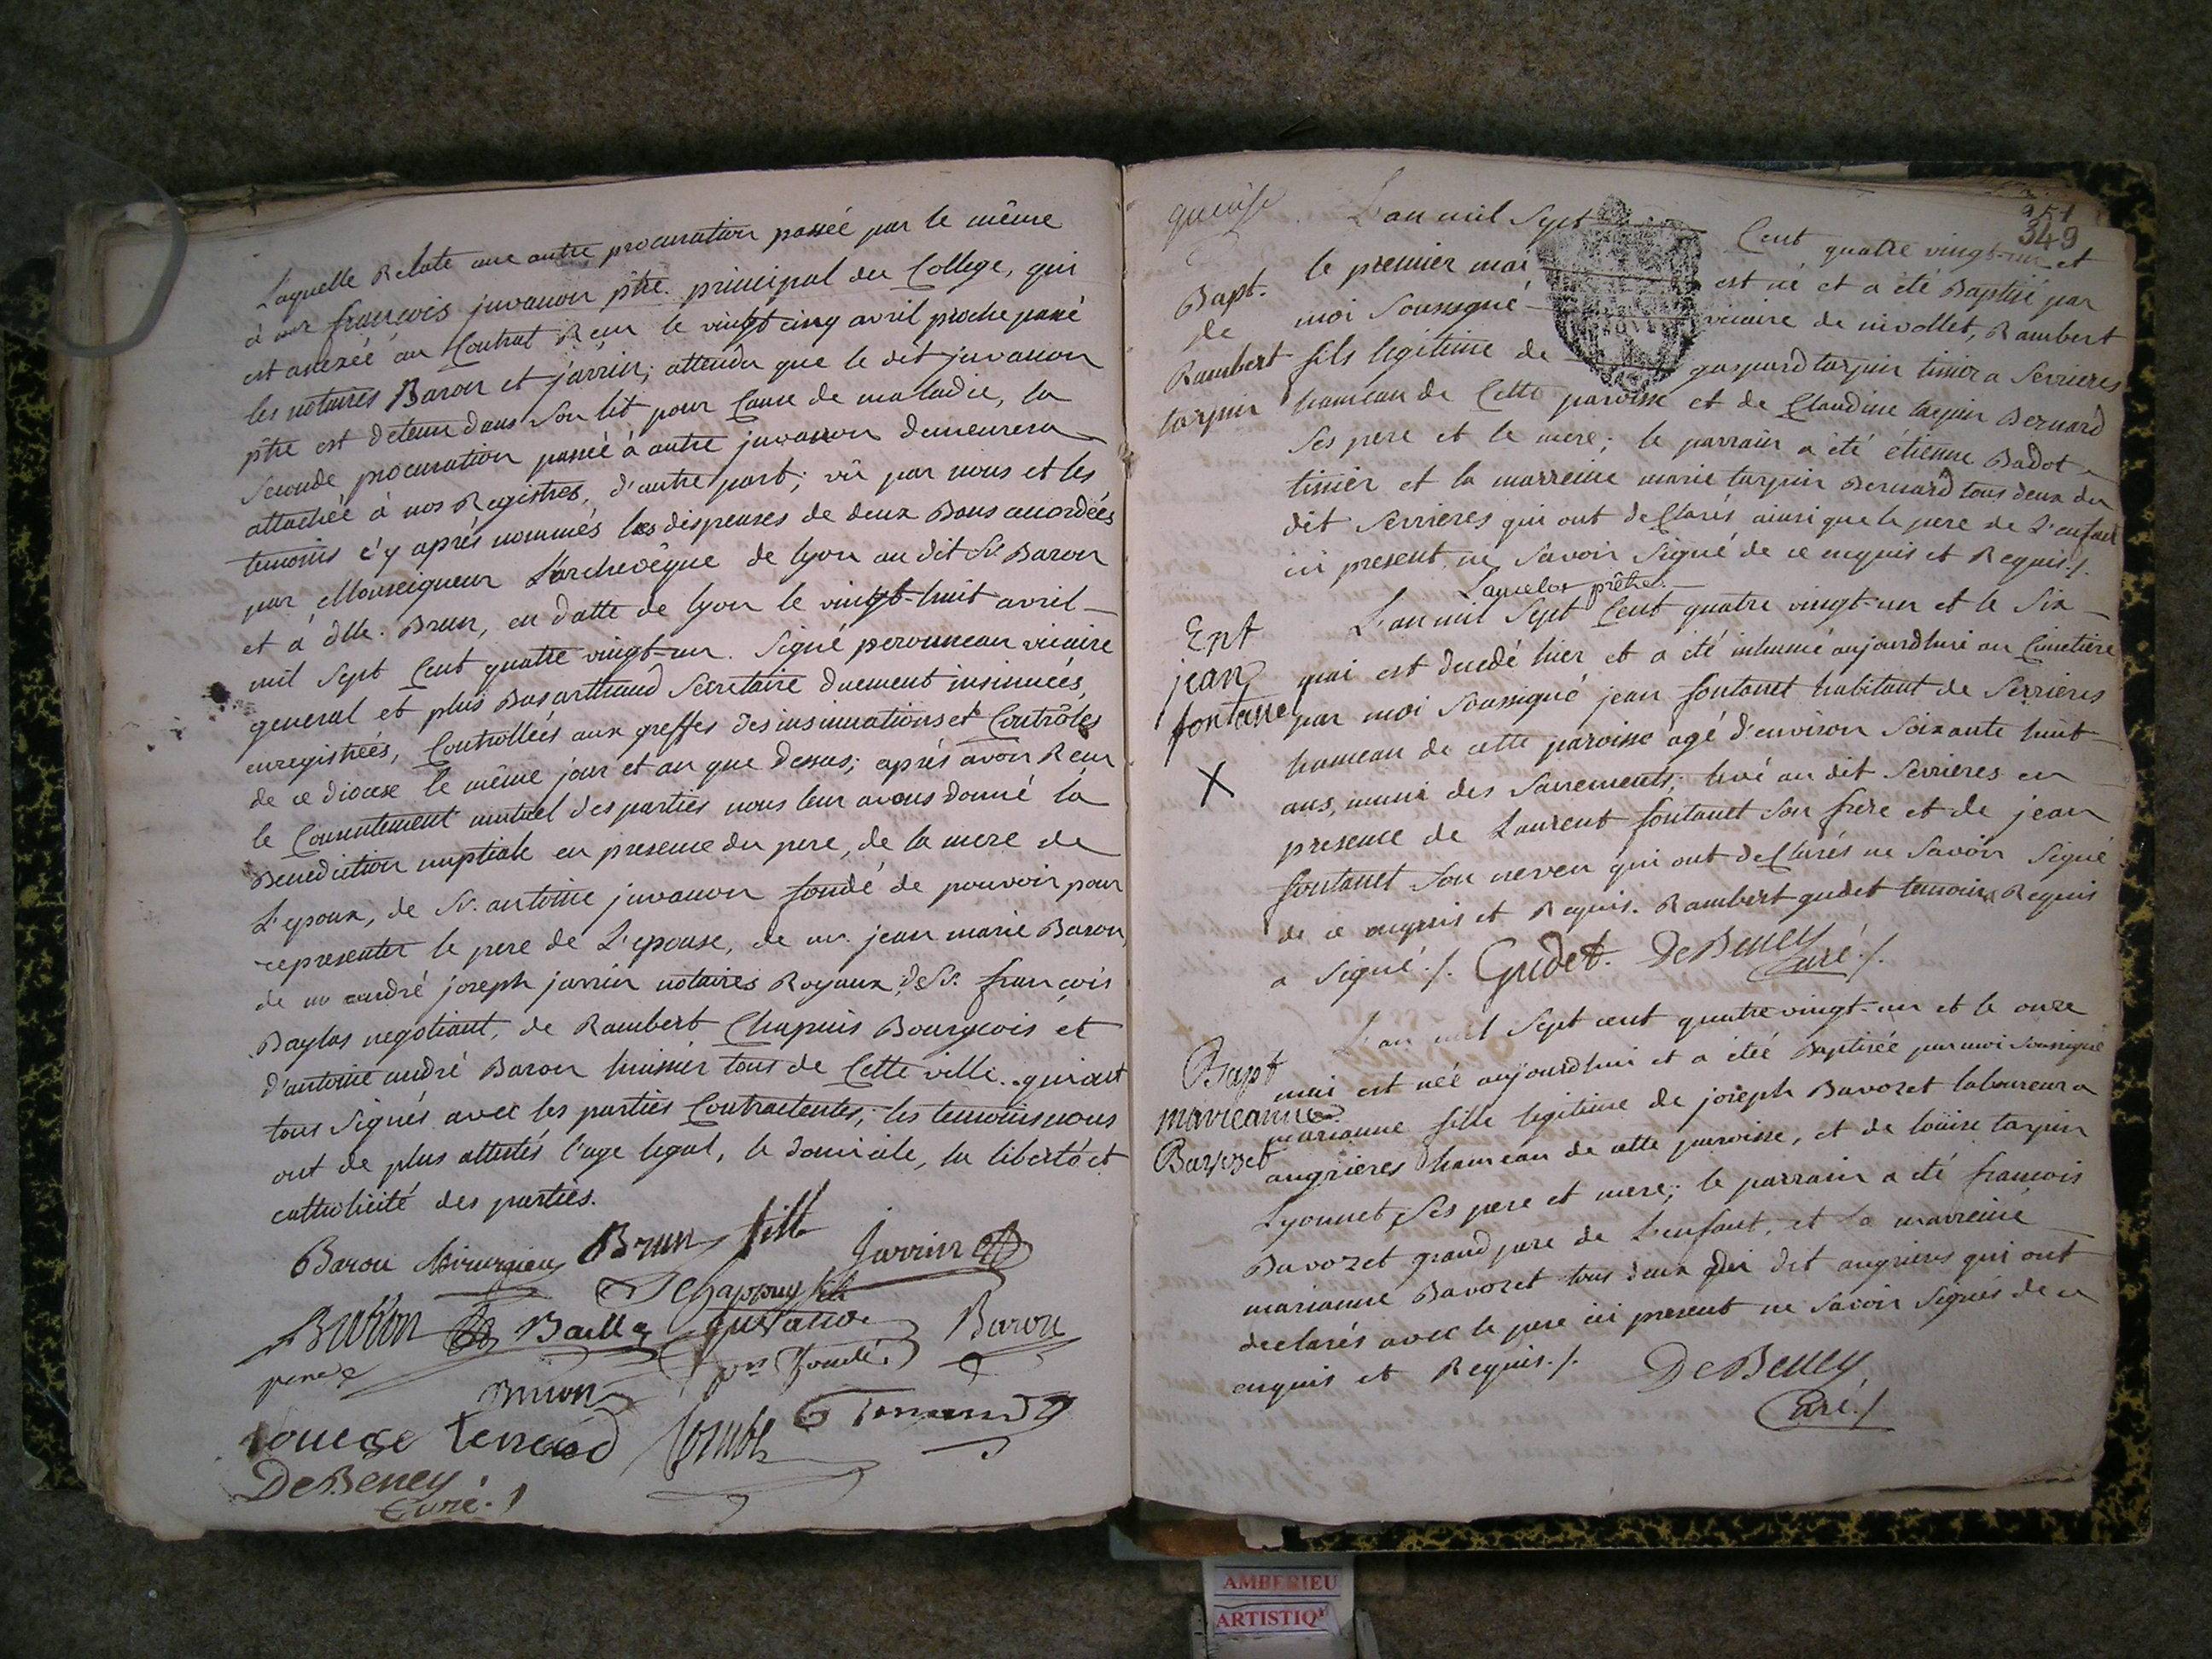 Laquelle Relate une autre procuration passée par le même
à mr françois juvanon ptre. principal du College, qui
est anexée au Contrat Reçu le vingt cinq avril proche passé
les notaires Baron et jarrin; attendu que le dit juvanon
ptre est detenu dans Son lit pour Cause de maladie, la
Seconde procuration passée à autre juvanon demeurera
attachée à nos Registres, d'autre part; vû par nous et les
temoins cy après nommés les dispenses de deux Bans accordées
par Monseigneur L'archevêque de lyon au dit Sr. Baron
et à dlle. Brun, en datte de lyon le vingt-huit avril
mil Sept Cent quatre vingt-un. Signé peronneau vicaire
general et plus Bas arthaud Secretaire duement insinuées,
enregistrées, Controllées aux greffes des insinuations et Contrôles
de ce diocese le même jour et an que dessus; après avoir Reçu
le Consentement mutuel des parties nous leur avons donné la
Benediction nuptiale en presence du pere, de la mere de
L'epoux, de Sr. antoine juvanon fondé de pouvoir pour
representer le pere de L'epouse, de mr. jean marie Baron,
de mr andré joseph jarrin notaires Royaux, de Sr. françois
Baylas negotiant, de Rambert Chapuis Bourgeois et
d'antoine andré Baron huissier tous de Cette ville. qui ont
tous Signés avec les parties Contractentes; les temoins nous
ont de plus attestés l'age legal, le domicile, la liberté et
catholicité des parties.
Baron chirurgien Brun fille jarrin
Chappuy
Baron Bailla juvanon Baron
pere fondé
Brun
Louise terraud
DeBeney
Curé./
351
349
L'an mil Sept Cent quatre vingt-un et
Bapt. le premier mai est né et a été Baptisé par
de moi Soussigné vicaire de nivollet, Rambert
Rambert fils legitime de gaspard tarpin tissier a Serrieres
tarpin hameau de Cette paroisse et de Claudine tarpin Bernard
Ses pere et le mere; le parrain a été étienne Badot
tissier et la marreine marie tarpin Bernard tous deux du
dit Serrieres qui ont declarés ainsi que le pere de L'enfant
ici present, ne Savoir Signé de ce enquis et Requis./.
Lancelot prêtre.
L'an mil Sept Cent quatre vingt-un et le Six
Ent
jean mai est decedé hier et a été inhumé aujourdhui au Cimetière
fontanel par moi Soussigné jean fontanet habitant de Serrieres
X hameau de cette paroisse agé d'environ Soixante huit
ans, muni des Sacrements; levé au dit Serrieres en
presence de Laurent fontanet Son frere et de jean
fontanet Son neveu qui ont declarés ne Savoir Signé
de ce enquis et Requis. Rambert gudet temoin Requis
a Signé./. Gudet. DeBeney
Curé./.
L'an mil Sept cent quatre vingt-un et le onze
Bapt mai est née aujourdhui et a étée Baptisée par moi Soussigné
marieanne marianne fille legitime de joseph Bavozet laboureur a
Bavozet angrieres hameau de cette paroisse, et de loüise tarpin
Lyonnet, Ses pere et mere; le parrain a été françois
Bavozet grand pere de L'enfant, et la marreine
marianne Bavozet tous deux du dit angrieres qui ont
declarés avec le pere ici present ne Savoir Signés de ce
enquis et Requis./. DeBeney
Curé./
AMBERIEU
ARTISTIQ